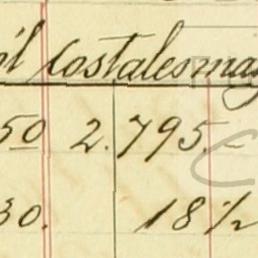 il Costales may
50 2.795.-
30. 18½